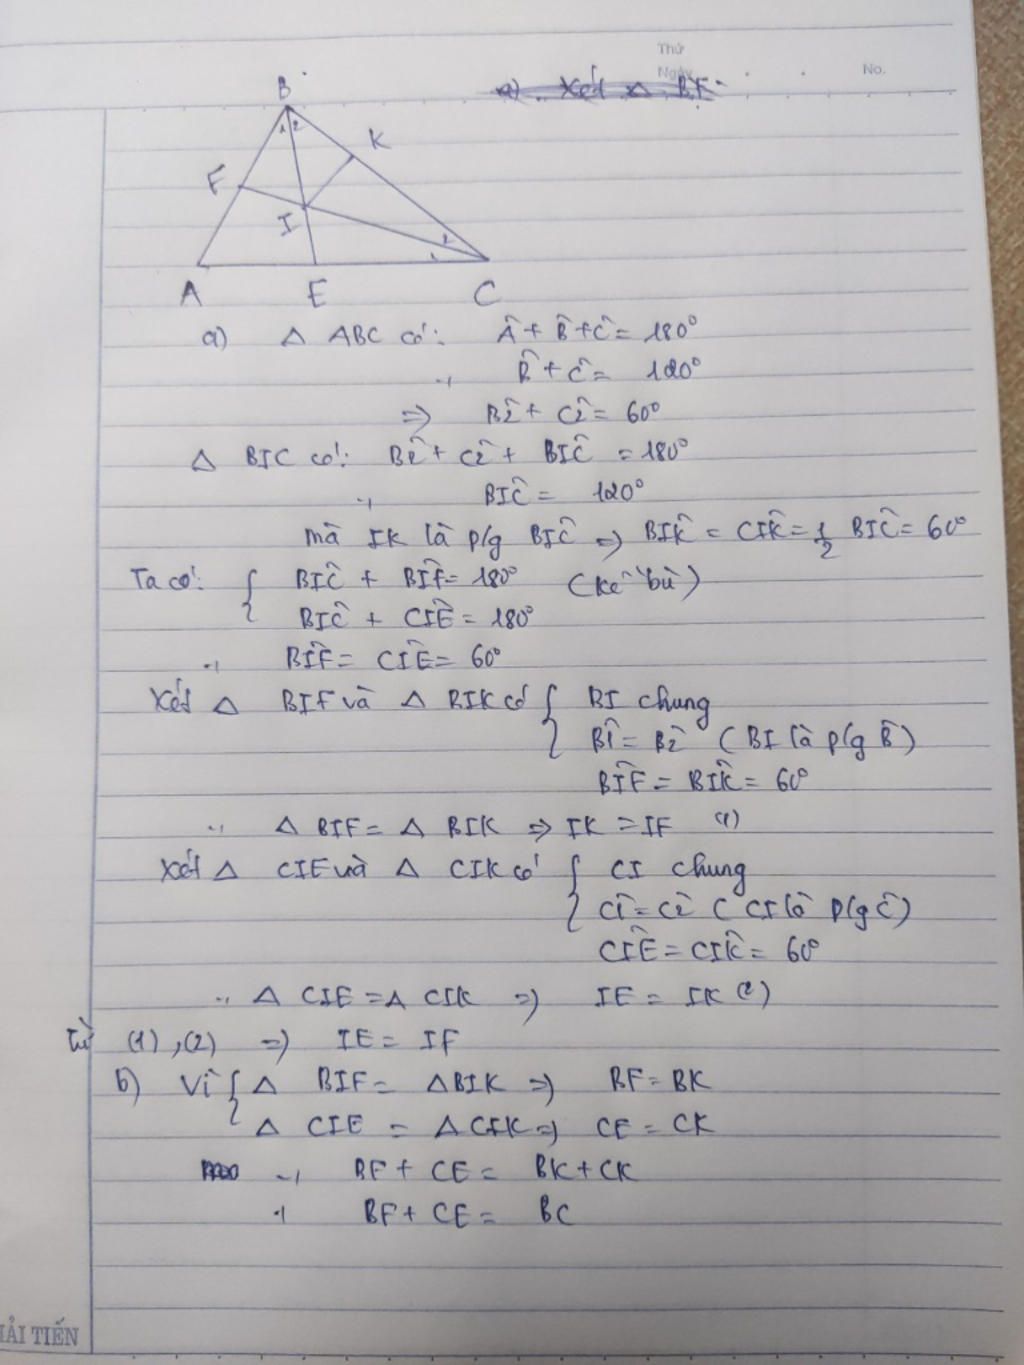 Thứ
Ngày
No.
a) Xét Δ BF
B
1 2
K
F
I
2
1
A E C
a) Δ ABC có: Â + B̂ + Ĉ = 180°
B̂ + Ĉ = 120°
⇒ B̂2 + Ĉ2 = 60°
Δ BIC có: B̂2 + Ĉ2 + BIĈ = 180°
BIĈ = 120°
mà IK là p/g BIĈ ⇒ BIK̂ = CIK̂ = 1/2 BIĈ = 60°
Ta có: { BIĈ + BIF̂ = 180° (kề bù)
BIĈ + CIÊ = 180°
BIF̂ = CIÊ = 60°
Xét Δ BIF và Δ BIK có { BI chung
B̂1 = B̂2 (BI là p/g B̂)
BIF̂ = BIK̂ = 60°
Δ BIF = Δ BIK ⇒ IK = IF (1)
Xét Δ CIE và Δ CIK có { CI chung
Ĉ1 = Ĉ2 (CI là p/g Ĉ)
CIÊ = CIK̂ = 60°
Δ CIE = Δ CIK ⇒ IE = IK (2)
Từ (1), (2) ⇒ IE = IF
b) Vì { Δ BIF = Δ BIK ⇒ BF = BK
Δ CIE = Δ CIK ⇒ CE = CK
BF + CE = BK + CK
BF + CE = BC
HẢI TIẾN